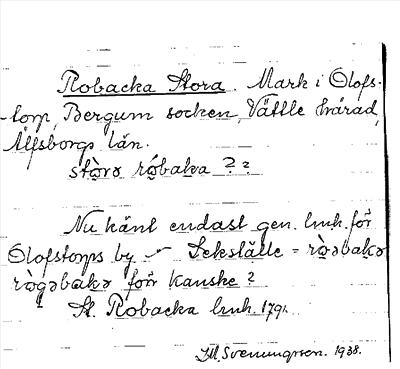 Robacka Stora. Mark i Olofs-
torp, Bergum socken, Vättle härad,
Älfsborgs län.
stò̱rə ró̱baka ? ?
Nu känt endast gen. lmk. för
Olofstorps by. Lekställe = rò̱əbakə
rò̱gəbakə förr kanske ?
St. Robacka lmk. 1791.
M. Svenungsson. 1938.